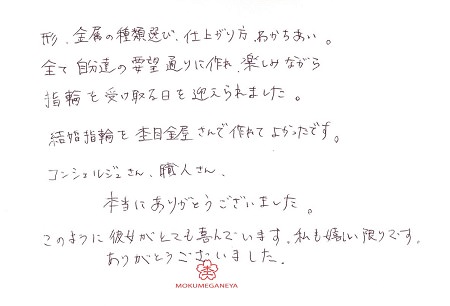 形、金属の種類選び、仕上がり方、わかちあい。
全て自分達の要望通りに作れ、楽しみながら
指輪を受け取る日を迎えられました。
結婚指輪を杢目金屋さんで作れてよかったです。
コンシェルジュさん、職人さん、
本当にありがとうございました。
このように彼女がとても喜んでいます。私も嬉しい限りです。
ありがとうございました。
MOKUMEGANEYA